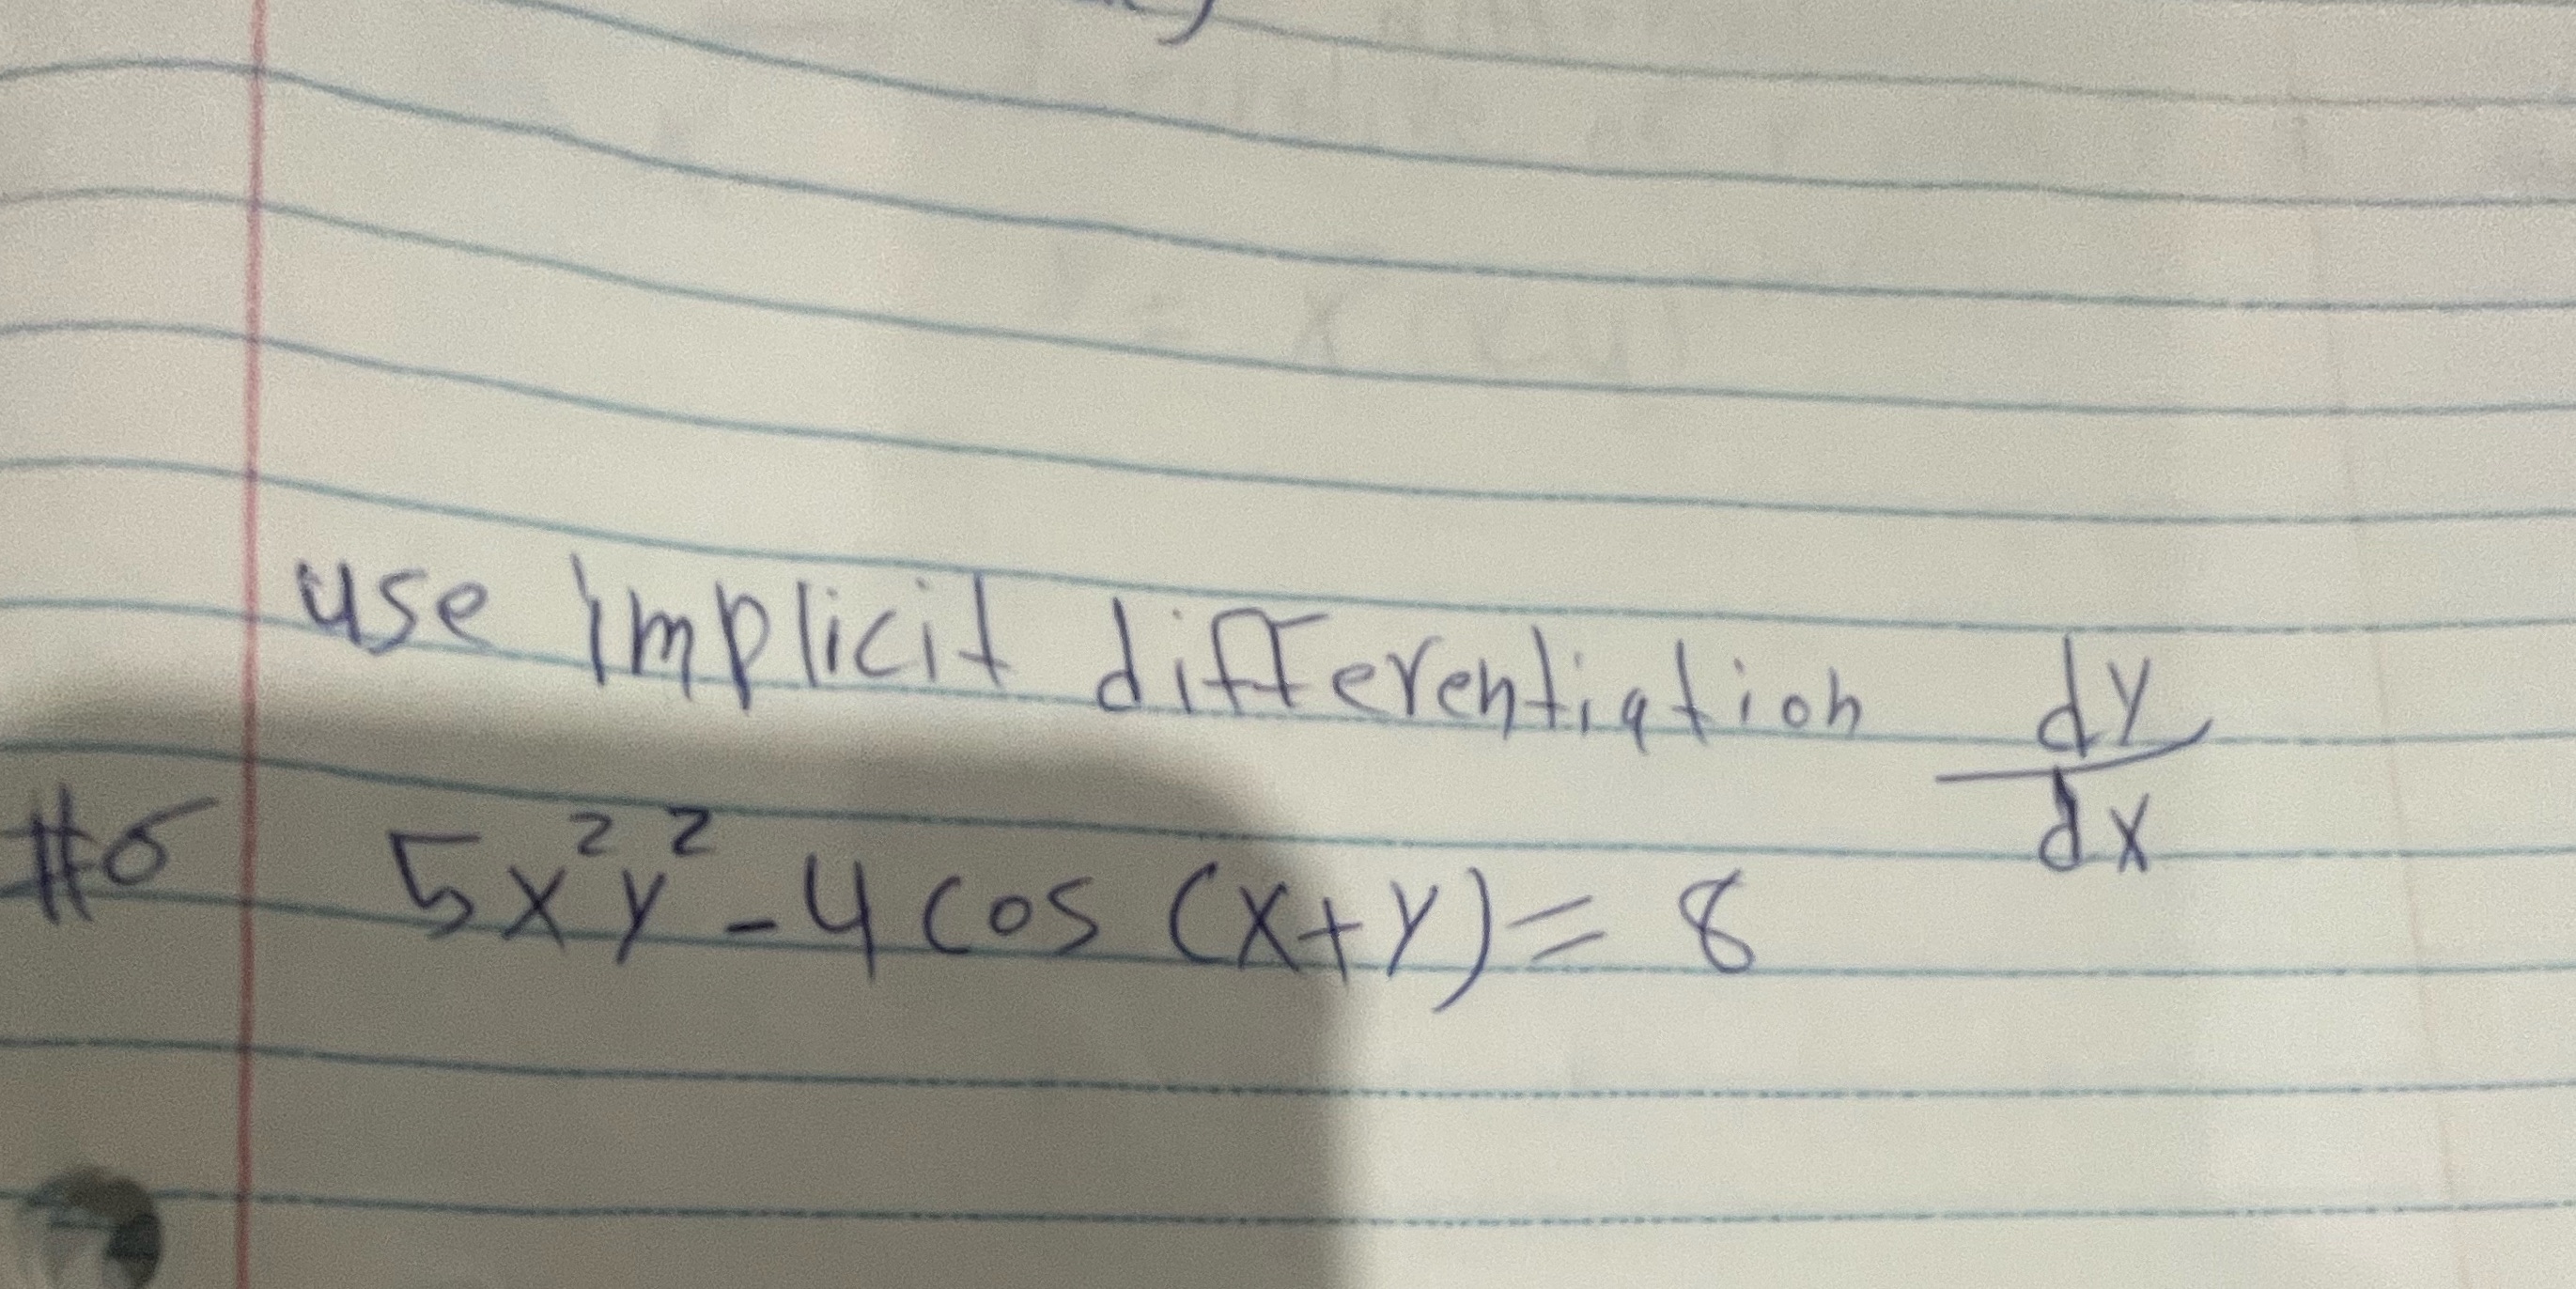 use implicit differentiation dy/dx
#6 5x²y² - 4 cos (x+y) = 8